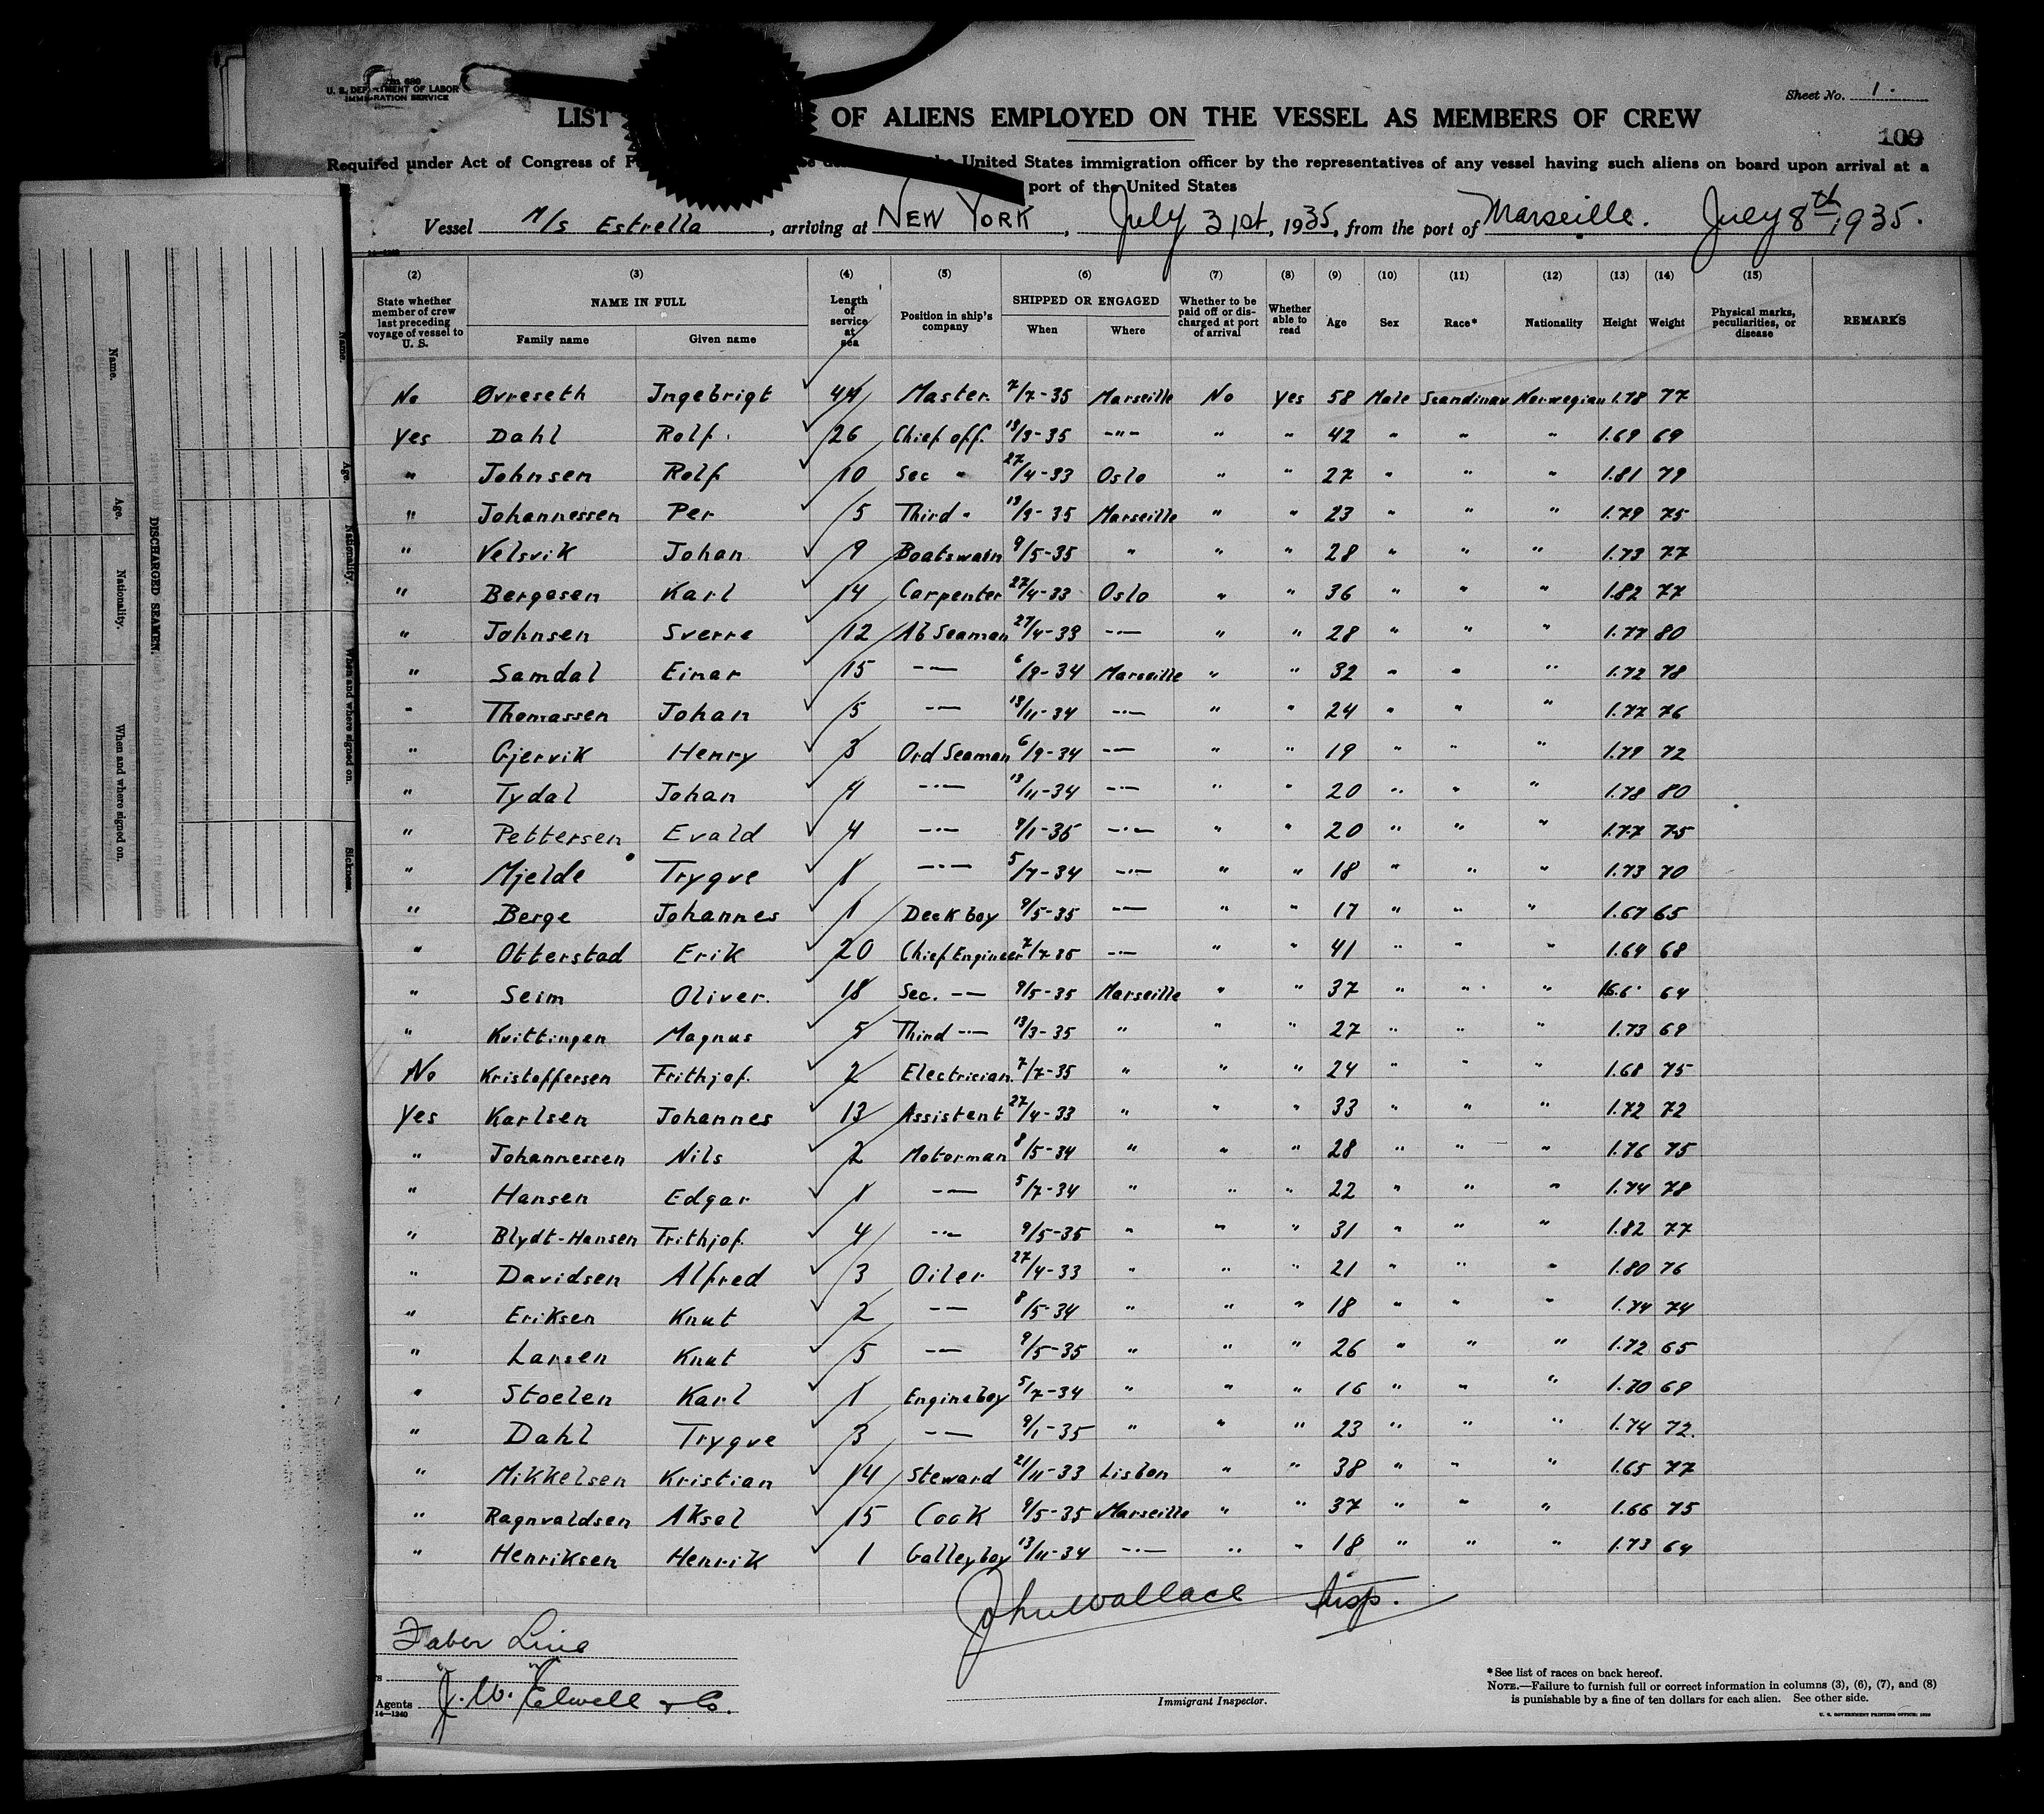 U. S. DEPARTMENT OF LABOR
IMMIGRATION SERVICE
Sheet No. 1.
LIST OF ALIENS EMPLOYED ON THE VESSEL AS MEMBERS OF CREW
109
Required under Act of Congress of United States immigration officer by the representatives of any vessel having such aliens on board upon arrival at a
port of the United States
Vessel M/s Estrella, arriving at NEW YORK, July 31st, 1935, from the port of Marseille. July 8th, 1935.
(2) (3) (4) (5) (6) (7) (8) (9) (10) (11) (12) (13) (14) (15)
State whether member of crew last preceding voyage of vessel to U. S. NAME IN FULL Family name Given name Length of service at sea Position in ship's company SHIPPED OR ENGAGED When Where Whether to be paid off or discharged at port of arrival Whether able to read Age Sex Race* Nationality Height Weight Physical marks, peculiarities, or disease REMARKS
No Øvreseth Ingebrigt 44 Master. 7/7-35 Marseille No Yes 58 Male Scandinav Norwegian 1.78 77
Yes Dahl Rolf. 26 Chief off. 13/3-35 -"- " " 42 " " " 1.69 69
" Johnsen Rolf 10 Sec " 27/4-33 Oslo " " 27 " " " 1.81 79
" Johannessen Per 5 Third " 13/3-35 Marseille " " 23 " " " 1.79 75
" Velsvik Johan 9 Boatswain 9/5-35 " " " 28 " " " 1.73 77
" Bergesen Karl 14 Carpenter 27/4-33 Oslo " " 36 " " " 1.82 77
" Johnsen Sverre 12 Ab Seaman 27/4-33 -"- " " 28 " " " 1.77 80
" Samdal Einar 15 -"- 6/9-34 Marseille " " 32 " " " 1.72 78
" Thomassen Johan 5 -"- 13/11-34 -"- " " 24 " " " 1.77 76
" Gjervik Henry 3 Ord Seaman 6/9-34 -"- " " 19 " " " 1.79 72
" Tydal Johan 4 -"- 13/11-34 -"- " " 20 " " " 1.78 80
" Pettersen Evald 4 -"- 9/1-35 -"- " " 20 " " " 1.77 75
" Mjelde Trygve 1 -"- 5/7-34 -"- " " 18 " " " 1.73 70
" Berge Johannes 1 Deck boy 9/5-35 -"- " " 17 " " " 1.67 65
" Otterstad Erik 20 Chief Engineer 7/7-35 -"- " " 41 " " " 1.64 68
" Seim Oliver. 18 Sec. -"- 9/5-35 Marseille " " 37 " " " 64
" Kvittingen Magnus 5 Third -"- 13/3-35 " " " 27 " " " 1.73 69
No Kristoffersen Frithjof. 2 Electrician. 7/7-35 " " " 24 " " " 1.68 75
Yes Karlsen Johannes 13 Assistent 27/4-33 " " " 33 " " " 1.72 72
" Johannessen Nils 2 Motorman 8/5-34 " " " 28 " " " 1.76 75
" Hansen Edgar 1 -"- 5/7-34 " " " 22 " " " 1.74 78
" Blydt-Hansen Frithjof. 4 -"- 9/5-35 " " " 31 " " " 1.82 77
" Davidsen Alfred 3 Oiler 27/4-33 " " " 21 " " " 1.80 76
" Eriksen Knut 2 -"- 8/5-34 " " " 18 " " " 1.74 74
" Larsen Knut 5 -"- 9/5-35 " " " 26 " " " 1.72 65
" Stoelen Karl 1 Engineboy 5/7-34 " " " 16 " " " 1.70 69
" Dahl Trygve 3 -"- 9/1-35 " " " 23 " " " 1.74 72.
" Mikkelsen Kristian 14 Steward 21/11-33 Lisbon " " 38 " " " 1.65 77
" Ragnvaldsen Aksel 15 Cook 9/5-35 Marseille " " 37 " " " 1.66 75
" Henriksen Henrik 1 Galleyboy 13/11-34 -"- " " 18 " " " 1.73 64
John Wallace Insp.
Immigrant Inspector.
Faber Line
Agents J. W. Elwell & Co.
14—1240
*See list of races on back hereof.
NOTE.—Failure to furnish full or correct information in columns (3), (6), (7), and (8)
is punishable by a fine of ten dollars for each alien. See other side.
U. S. GOVERNMENT PRINTING OFFICE
Name. Age. Nationality. When and where signed on. Sickness.
DISCHARGED SEAMEN.
Name. Age. Nationality. When and where signed on.